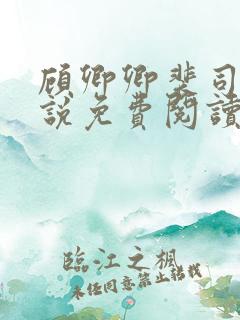 顾卿卿裴司
說免費閱讀
臨江之楓
未经同意禁止转载